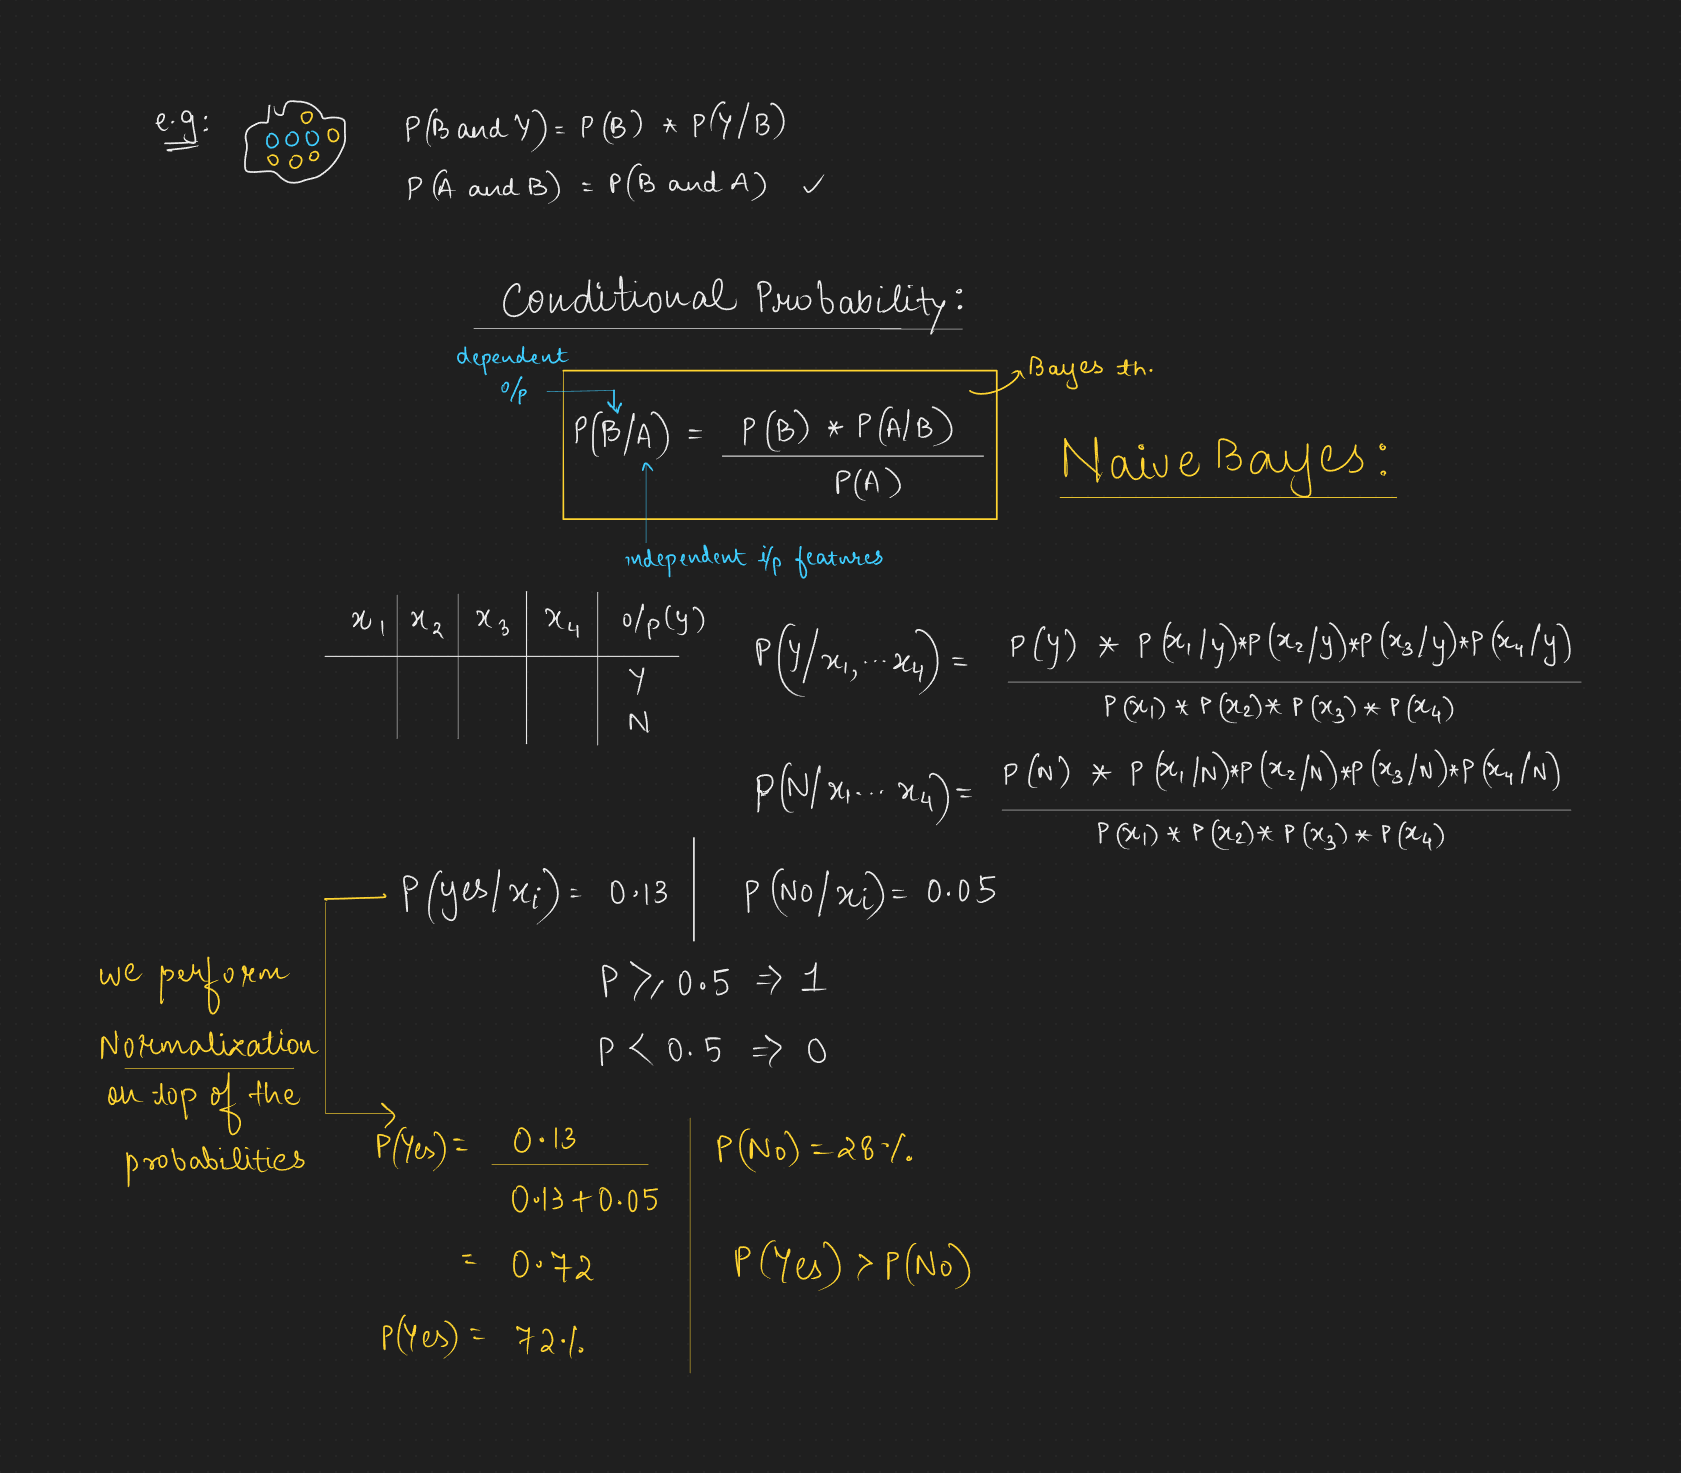 e.g:
P(B and Y) = P(B) * P(Y/B)
P(A and B) = P(B and A) ✓
Conditional Probability:
dependent
o/p
Bayes th.
P(B/A) = P(B) * P(A/B)
P(A)
Naive Bayes:
independent i/p features
x1 x2 x3 x4 o/p(y)
Y
N
P(Y/x1,...x4) = P(y) * P(x1/y)*P(x2/y)*P(x3/y)*P(x4/y)
P(x1) * P(x2) * P(x3) * P(x4)
P(N/x1...x4) = P(N) * P(x1/N)*P(x2/N)*P(x3/N)*P(x4/N)
P(x1) * P(x2) * P(x3) * P(x4)
P(yes/xi) = 0.13
P(No/xi) = 0.05
P ≥ 0.5 ⇒ 1
P < 0.5 ⇒ 0
we perform
Normalization
on top of the
probabilities
P(Yes) = 0.13
0.13 + 0.05
= 0.72
P(Yes) = 72%
P(No) = 28%
P(Yes) > P(No)